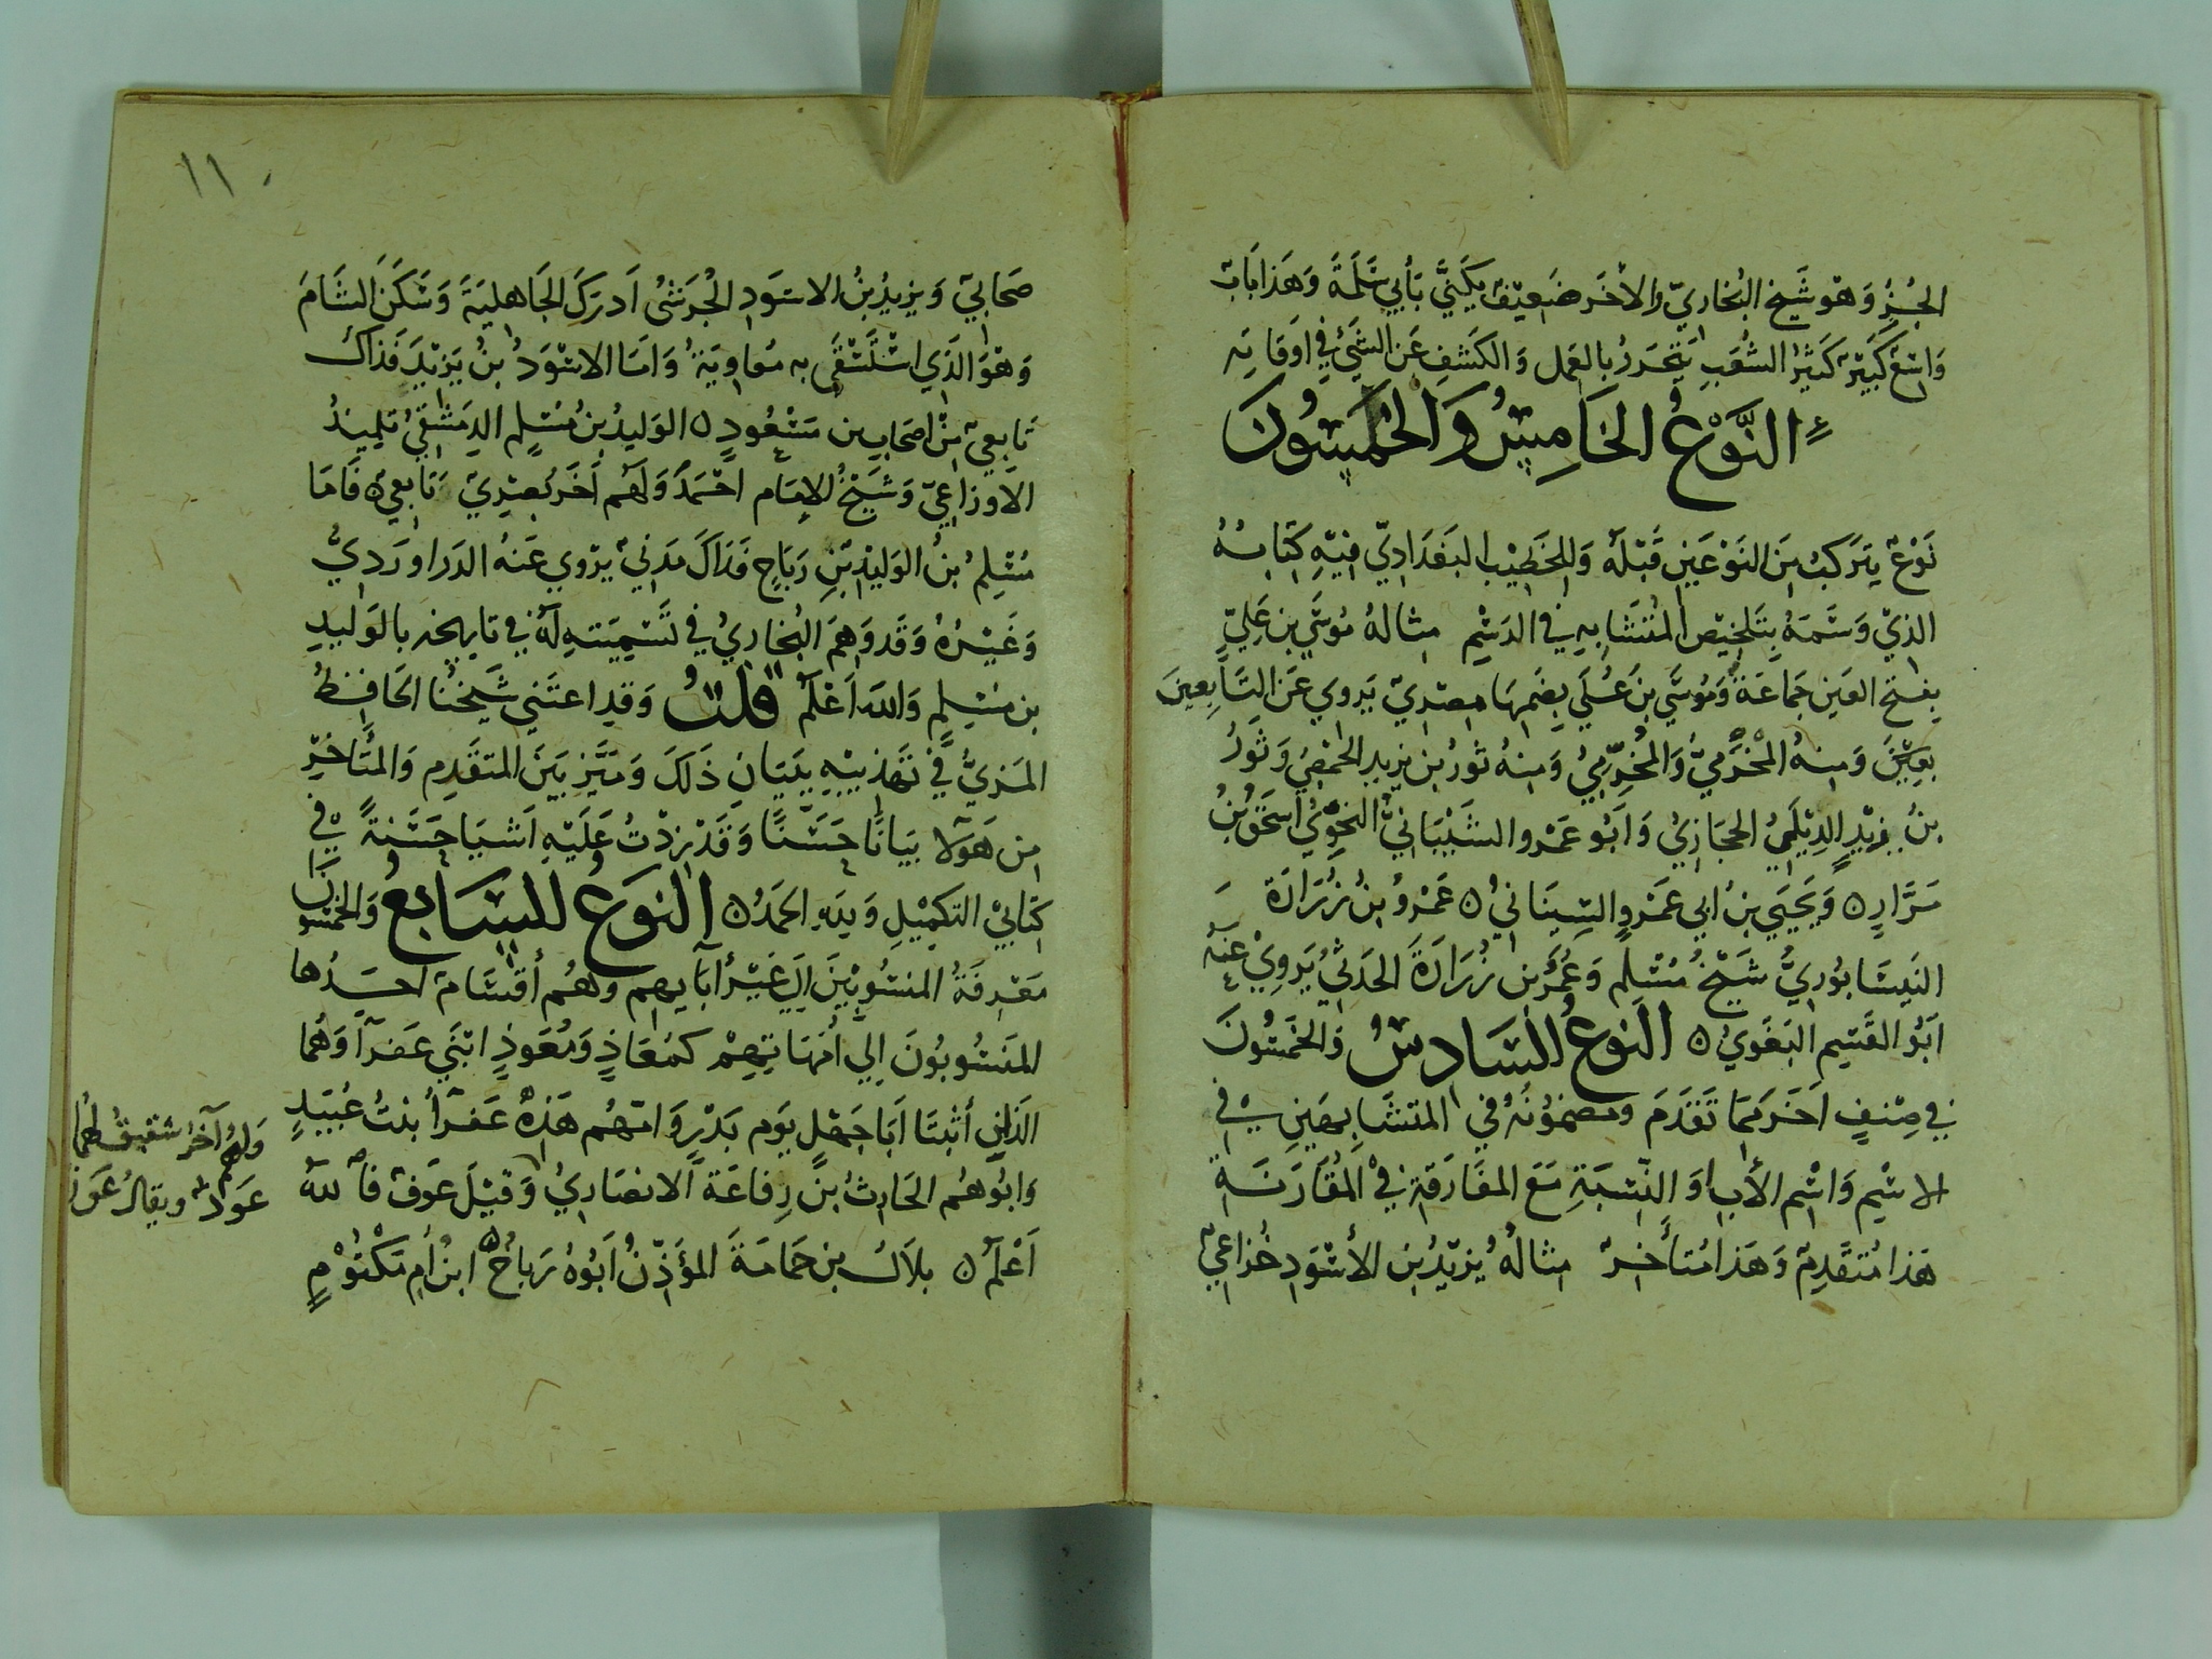 الحُبُرِ وَهوَ شَيخ البُخاريّ والاٰخَر ضَعيْفٌ يُكَنَّي بأَبي سَلَمَةَ وَهَذا بَابٌ
وَاسِعٌ كَبيْرٌ كَثيْرُ الشُعَبِ يَتَحَرَّرُ بالعَمل وَالكَشفِ عَن الشَيْءِ في اَوقَاتِه
النَّوْعُ الخَامِسُ وَالخَمْسُونَ
نَوْعٌ يَتَرَكبُ مِنَ النَوْعَيْنِ قَبْلَهُ وَللِخَطِيْبِ البَغدَادِيّ فيْهِ كِتَابُهُ
الذِيْ وَسَمَهُ بِتَلْخيْصِ المُتَشَابِهِ في الرَسْمِ مثالهُ مُوسَي بن عَلِيّ
بِفَتحِ العَينِ جَمَاعَةٌ وَمُوسَي بنُ عُلَي بِضَمِهَا مِصْريّ يَروي عَن التَابِعينَ
بِعَيْنَ وَمنهُ المُخَرَّميُّ وَالمَخْرَمِيُّ وَمِنهُ ثَورُ بن يَزيد الحمْصِيُ وَثَورُ
بنُ زيْدٍ الدِيْلَمِيُ الحجَازِيُ وَاَبُو عَمْرو الشَيْبَانيُّ النَحْوِيُ اسحَقُ بنُ
مَرَّارٍ ۝ وَيَحْيَي بنُ ابي عَمْروٍ السِيبَانيُ ۝ عَمْرُو بنُ زُرَارَة
النَيسَابُورِيُّ شَيْخُ مُسْلِمٍ وَعُمَرُ بن زُرَارَةَ الحَدَثيُّ يَروِيْ عَنهُ
اَبُو القَسِمِ البَغَويُ ۝ النوعُ السَادِسُ وَالخَمسُونَ
في صِنفٍ اٰخَرَ مِمَا تَقَدَمَ وَمضمُونُهُ في المتشَابِهَينِ في
الاسْمِ وَاسْمِ الأبِ اوَ النِسْبَةِ مَعَ المفَارَقَةِ في المُقَارَنَةِ
هَذا مُتَقَدِمٌ وَهَذا مُتأخِرٌ مثالُهُ يَزيْدُ بنِ الأسْوَدِ خُزاعِيٌ
١١٠
صَحَابيٌ وَيَزيدُ بنُ الاسوَدِ الجُرَشيُ اَدرَكَ الجَاهليَةَ وَسَكَنَ الشَامَ
وَهْوَ الذَي اسْتَسْقَي به مُعاويَةُ وَامَا الاسْوَدُ بنُ يَزيْدَ فَذاكَ
تَابِعيٌ مِنْ اصحَابِ بن مَسْعُودٍ ۝ الوَليدُ بنُ مُسْلِمٍ الدِمَشْقِيُ تلميذُ
الاَوزاعِيّ وَشَيْخُ الإمَام احْمَدُ وَلَهُم اٰخَر بَصْرِيٌ تَابعيٌ ۝ فَامَا
مُسْلِمُ بنُ الوَليْدِ بْنِ رَبَاحٍ فَذَاكَ مَدَنيٌ يَرْوي عَنهُ الدَرَاوَرَدِيُّ
وَغَيْرُهُ وَقَد وَهِمَ البُخاريُ في تَسْمِيَتهِ لَهُ في تَاريخه بالوَليدِ
بن مُسْلِمٍ وَاللهُ اَعْلَمُ قلتُ وَقدِ اعتَنَي شَيخُنا الحَافِظُ
المَزيُّ في تَهذيبِهِ بِبَيَانِ ذَلَكَ وَمَيَّزَ بَيَنَ المتقَدِم وَالمتَأَخِّرِ
مِن هَؤلا بَيَانًا حَسَنًا وَقَدْ زِدْتُ عَلَيْهِ اَشيَا حَسَنةً في
كتَابيْ التَكمِيْلِ وَلِلهِ الحَمدُ ۝ النَوعُ السَابعُ وَالخمسُونَ
مَعْرِفَةُ المنسُوبيْنَ اِلَي غَيْر آبآيِهم وَهُم أقسَامٌ احَدُهَا
المَنسُوبُونَ اِلَي أُمَهَاتِهِمْ كمُعَاذٍ وَمُعَوذٍ ابنَي عَفرآ وَهُما
الذَانِ أثْبَتَا اَبَا جَهْلٍ يَوم بَدْرٍ وَامهُم هَذهْ عَفرآ بنتُ عُبَيدٍ
وَابُوهُم الحَارثُ بنُ رِفاعَةَ الاَنصَاريُ وَقيْلَ عَوفٌ فاَللهُ
اَعْلَمُ ۝ بلاَلُ بن حَمَامَةَ المؤَذِّنُ اَبُوهُ رَبَاحٌ ۝ ابنُ اُم مَكتُوْمٍ
وَلهُم آخرُ شقيقٌ لهُما
عَوذٌ ويقالُ عَون